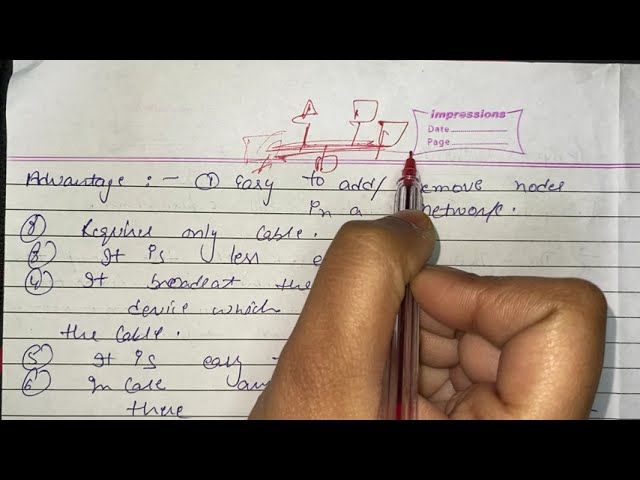 impressions
Date
Page
Advantage : - ① Easy to add/remove nodes
in a network.
② Requires only cable.
③ It is less
④ It broadcat the
device which
the cable.
⑤ It is easy
⑥ In case
there